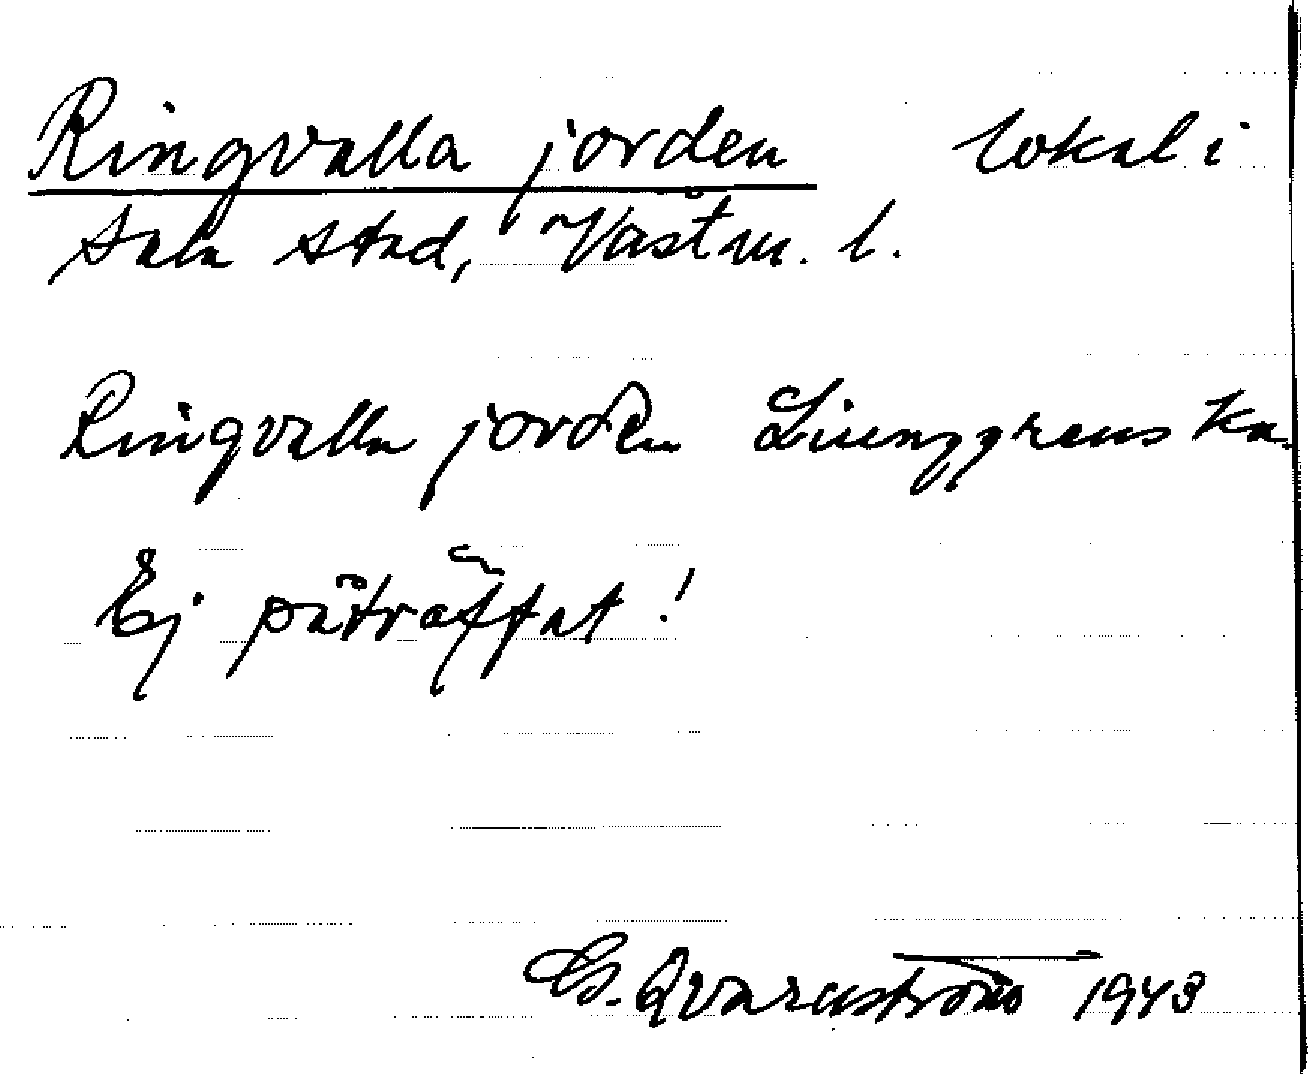 Ringvalla jorden lokal i
Sala stad, Västm. l.
Ringvalla jorden Liunggrens Ka.
Ej påträffat!
G. Qvarnström 1943